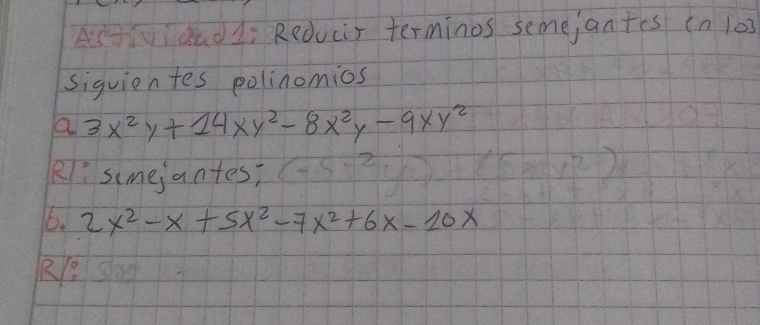 Actividad 1: Reducir terminos semejantes en los
siguientes polinomios
a. 3x²y + 14xy² - 8x²y - 9xy²
R/: semejantes;
b. 2x² - x + 5x² - 7x² + 6x - 10x
R/: